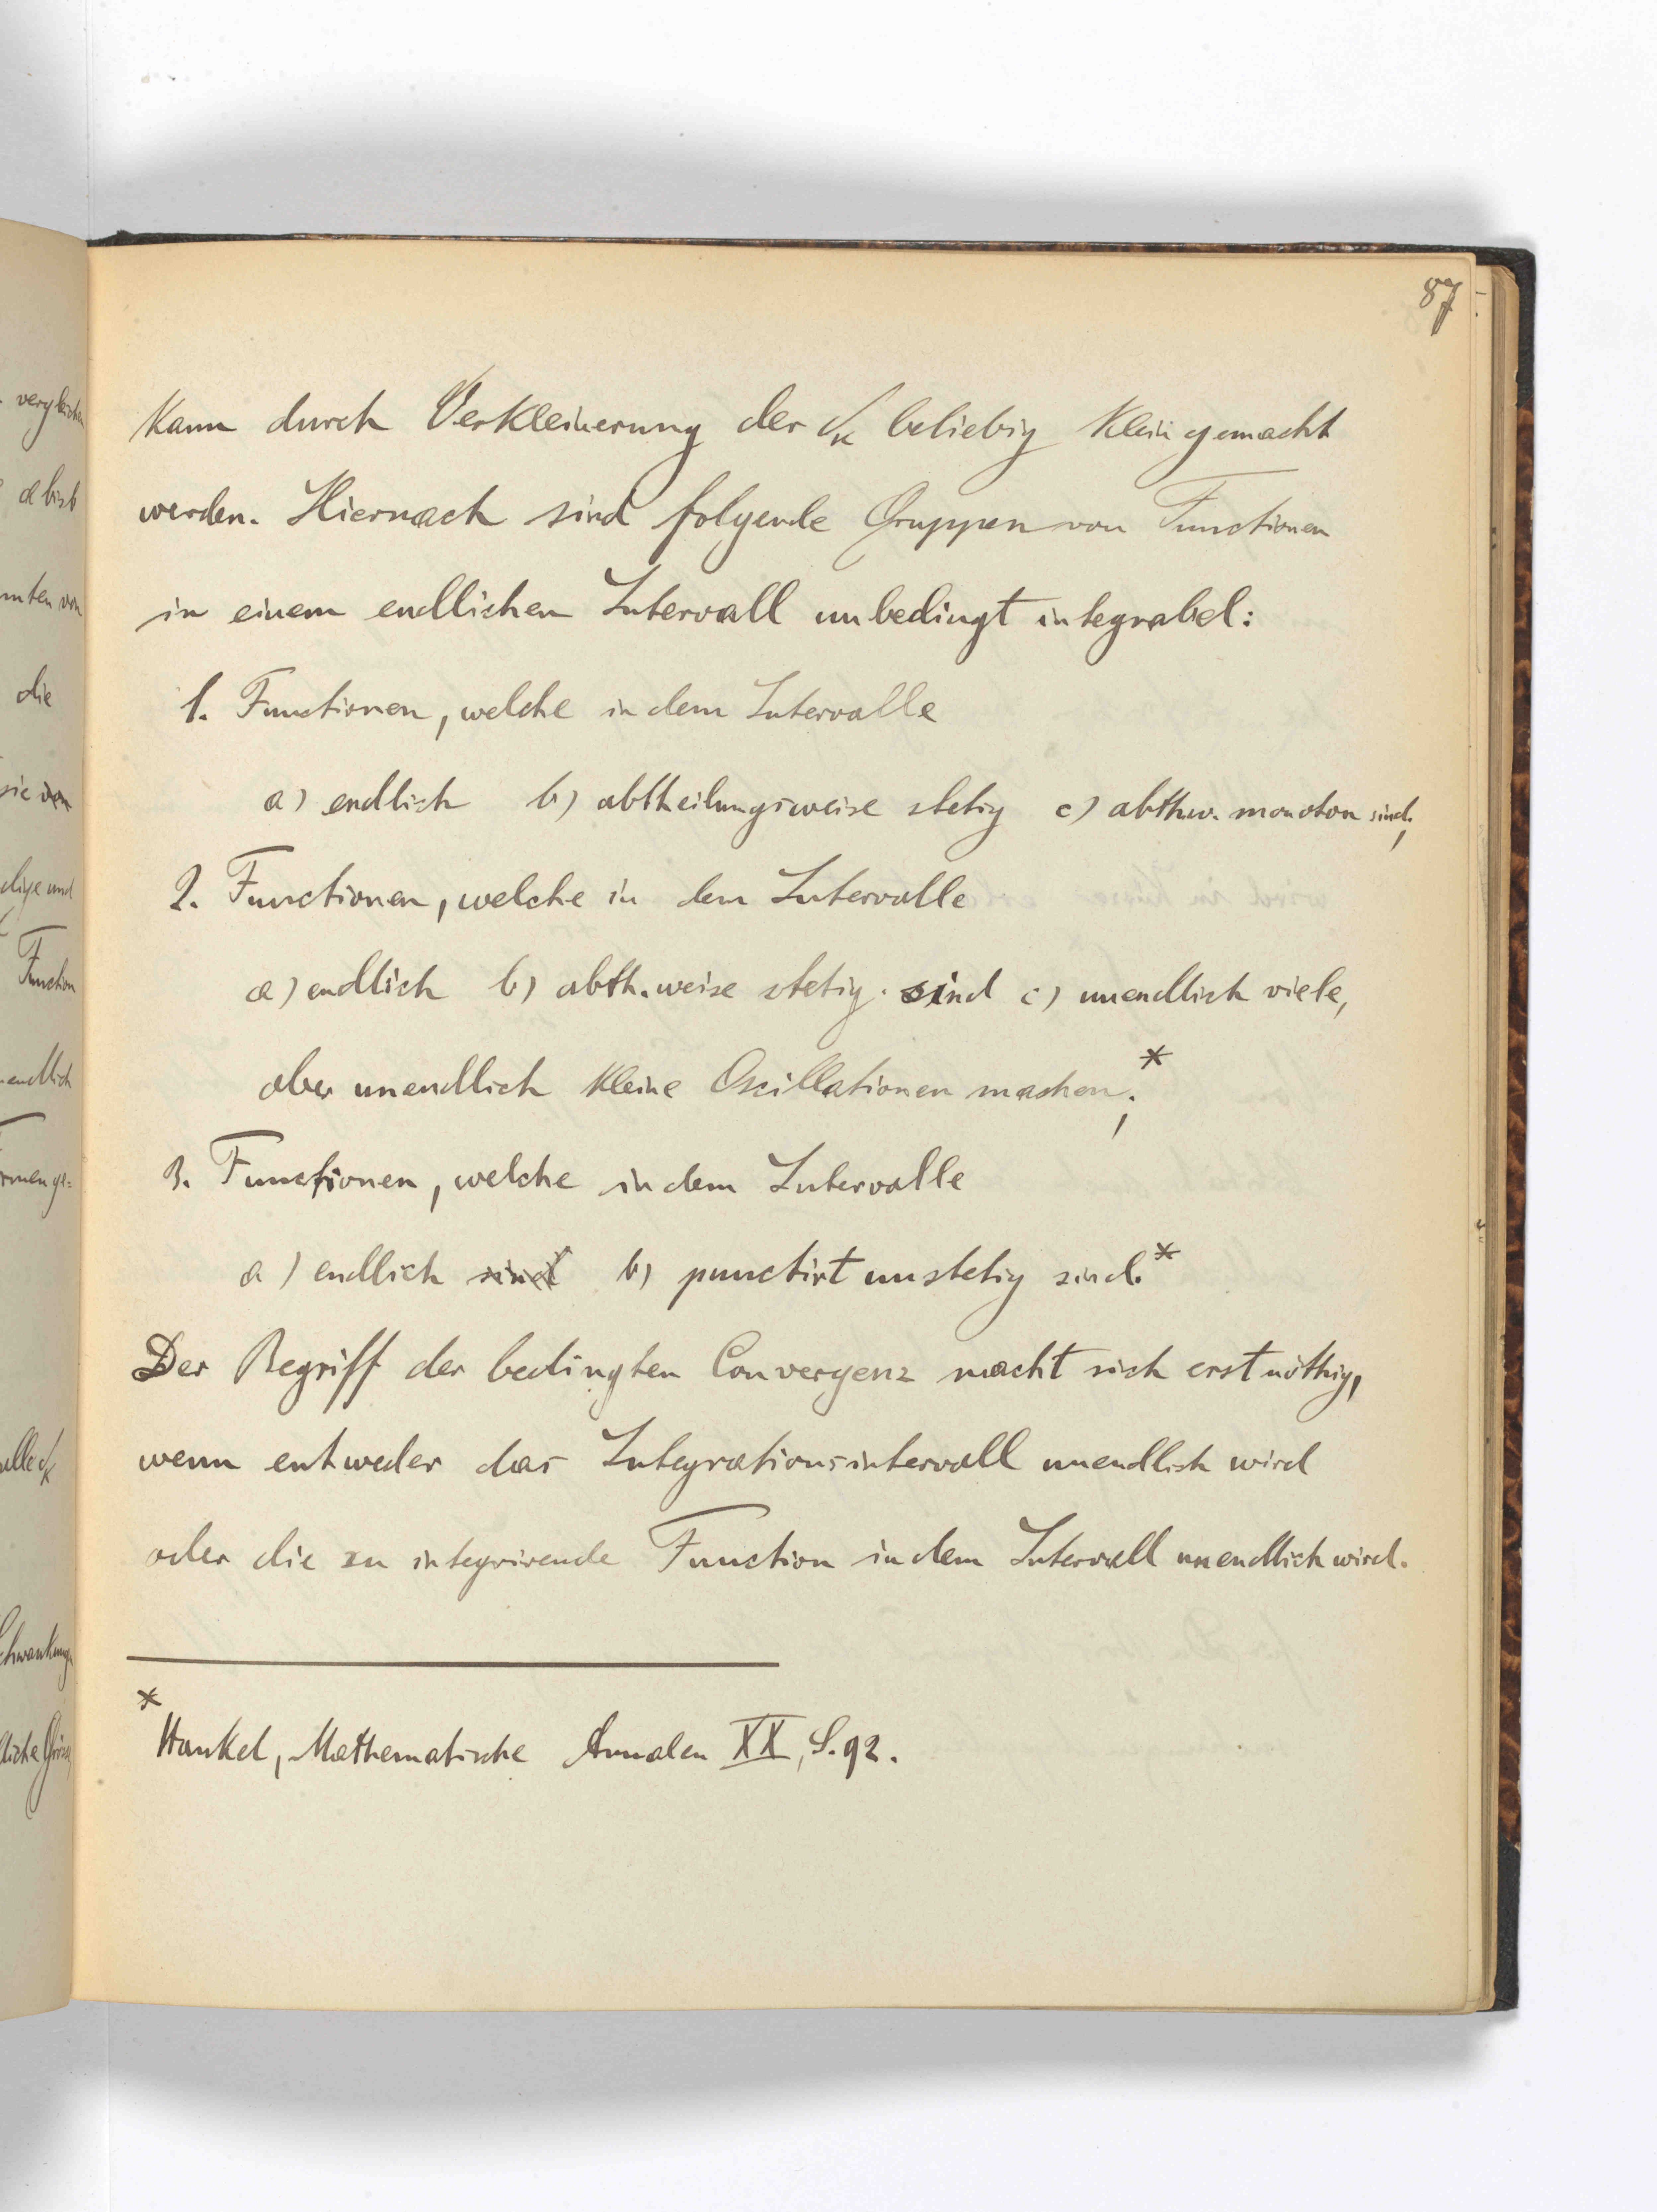 87
kann durch Verkleinerung der δ_k beliebig klein gemacht
werden. Hiernach sind folgende Gruppen von Functionen
in einem endlichen Intervall unbedingt integrabel:
1. Functionen, welche in dem Intervalle
a) endlich b) abtheilungsweise stetig c) abthw. monoton sind;
2. Functionen, welche in dem Intervalle
a) endlich b) abth.weise stetig sind c) unendlich viele,
aber unendlich kleine Oscillationen machen;*
3. Functionen, welche in dem Intervalle
a) endlich sind b) punctirt unstetig sind.*
Der Begriff der bedingten Convergenz macht sich erst nöthig,
wenn entweder das Integrationsintervall unendlich wird
oder die zu integrirende Function in dem Intervall unendlich wird.
* Hankel, Mathematische Annalen XX, S. 92.
die
Function